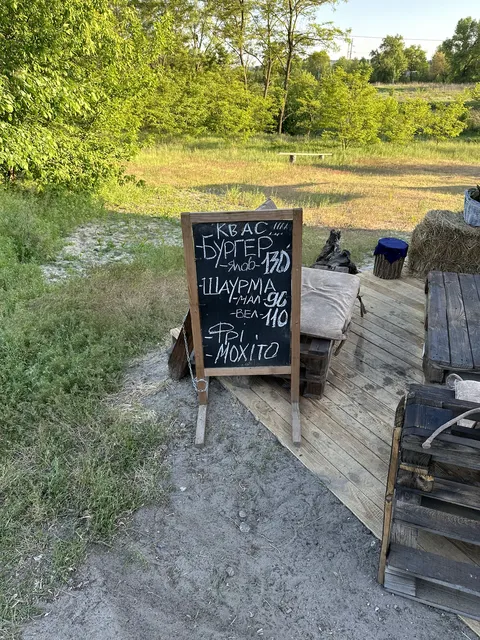 -КВАС
-БУРГЕР
-ялов-130
-ШАУРМА
-МАЛ-90
-ВЕЛ-110
-ФРІ
-МОХІТО